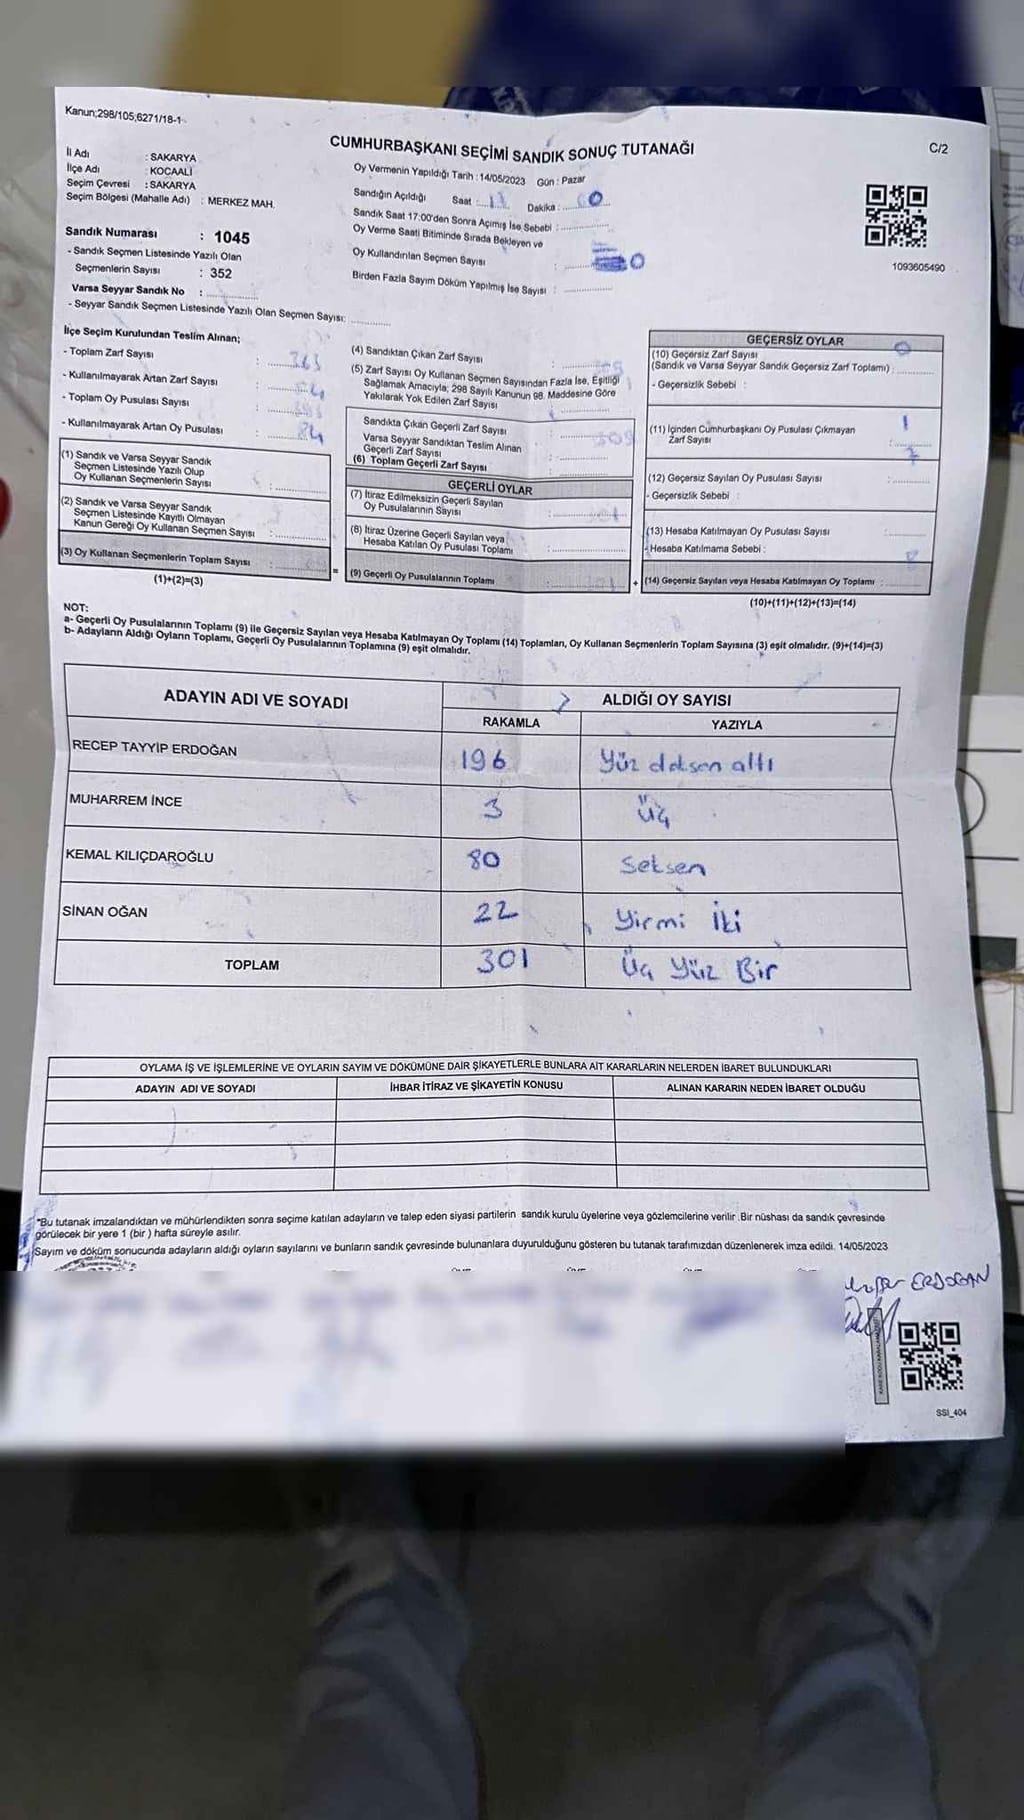 Kanun;298/105;6271/18-1
CUMHURBAŞKANI SEÇİMİ SANDIK SONUÇ TUTANAĞI
C/2
İl Adı : SAKARYA
İlçe Adı : KOCAALİ
Seçim Çevresi : SAKARYA
Seçim Bölgesi (Mahalle Adı) : MERKEZ MAH.
Sandık Numarası : 1045
- Sandık Seçmen Listesinde Yazılı Olan
Seçmenlerin Sayısı : 352
Varsa Seyyar Sandık No :
- Seyyar Sandık Seçmen Listesinde Yazılı Olan Seçmen Sayısı:
Oy Vermenin Yapıldığı Tarih : 14/05/2023 Gün : Pazar
Sandığın Açıldığı Saat : Dakika :
Sandık Saat 17:00'den Sonra Açımış İse Sebebi :
Oy Verme Saati Bitiminde Sırada Bekleyen ve
Oy Kullandırılan Seçmen Sayısı : 0
Birden Fazla Sayım Döküm Yapılmış İse Sayısı :
1093605490
İlçe Seçim Kurulundan Teslim Alınan;
- Toplam Zarf Sayısı : 363
- Kullanılmayarak Artan Zarf Sayısı :
- Toplam Oy Pusulası Sayısı :
- Kullanılmayarak Artan Oy Pusulası :
(1) Sandık ve Varsa Seyyar Sandık
Seçmen Listesinde Yazılı Olup
Oy Kullanan Seçmenlerin Sayısı :
(2) Sandık ve Varsa Seyyar Sandık
Seçmen Listesinde Kayıtlı Olmayan
Kanun Gereği Oy Kullanan Seçmen Sayısı :
(3) Oy Kullanan Seçmenlerin Toplam Sayısı :
(1)+(2)=(3)
(4) Sandıktan Çıkan Zarf Sayısı :
(5) Zarf Sayısı Oy Kullanan Seçmen Sayısından Fazla İse, Eşitliği
Sağlamak Amacıyla; 298 Sayılı Kanunun 98. Maddesine Göre
Yakılarak Yok Edilen Zarf Sayısı :
Sandıkta Çıkan Geçerli Zarf Sayısı : 309
Varsa Seyyar Sandıktan Teslim Alınan
Geçerli Zarf Sayısı :
(6) Toplam Geçerli Zarf Sayısı :
GEÇERLİ OYLAR
(7) İtiraz Edilmeksizin Geçerli Sayılan
Oy Pusulalarının Sayısı :
(8) İtiraz Üzerine Geçerli Sayılan veya
Hesaba Katılan Oy Pusulası Toplamı :
= (9) Geçerli Oy Pusulalarının Toplamı :
GEÇERSİZ OYLAR
(10) Geçersiz Zarf Sayısı 0
(Sandık ve Varsa Seyyar Sandık Geçersiz Zarf Toplamı) :
- Geçersizlik Sebebi :
(11) İçinden Cumhurbaşkanı Oy Pusulası Çıkmayan
Zarf Sayısı :
(12) Geçersiz Sayılan Oy Pusulası Sayısı :
- Geçersizlik Sebebi :
(13) Hesaba Katılmayan Oy Pusulası Sayısı :
- Hesaba Katılmama Sebebi :
+ (14) Geçersiz Sayılan veya Hesaba Katılmayan Oy Toplamı :
(10)+(11)+(12)+(13)=(14)
NOT:
a- Geçerli Oy Pusulalarının Toplamı (9) ile Geçersiz Sayılan veya Hesaba Katılmayan Oy Toplamı (14) Toplamları, Oy Kullanan Seçmenlerin Toplam Sayısına (3) eşit olmalıdır. (9)+(14)=(3)
b- Adayların Aldığı Oyların Toplamı, Geçerli Oy Pusulalarının Toplamına (9) eşit olmalıdır.
ADAYIN ADI VE SOYADI ALDIĞI OY SAYISI
RAKAMLA YAZIYLA
RECEP TAYYİP ERDOĞAN 196 Yüz doksan altı
MUHARREM İNCE 3 Üç
KEMAL KILIÇDAROĞLU 80 Seksen
SİNAN OĞAN 22 Yirmi İki
TOPLAM 301 Üç Yüz Bir
OYLAMA İŞ VE İŞLEMLERİNE VE OYLARIN SAYIM VE DÖKÜMÜNE DAİR ŞİKAYETLERLE BUNLARA AİT KARARLARIN NELERDEN İBARET BULUNDUKLARI
ADAYIN ADI VE SOYADI İHBAR İTİRAZ VE ŞİKAYETİN KONUSU ALINAN KARARIN NEDEN İBARET OLDUĞU
"Bu tutanak imzalandıktan ve mühürlendikten sonra seçime katılan adayların ve talep eden siyasi partilerin sandık kurulu üyelerine veya gözlemcilerine verilir. Bir nüshası da sandık çevresinde
görülecek bir yere 1 (bir) hafta süreyle asılır.
Sayım ve döküm sonucunda adayların aldığı oyların sayılarını ve bunların sandık çevresinde bulunanlara duyurulduğunu gösteren bu tutanak tarafımızdan düzenlenerek imza edildi. 14/05/2023
ERDOGAN
SSI_404